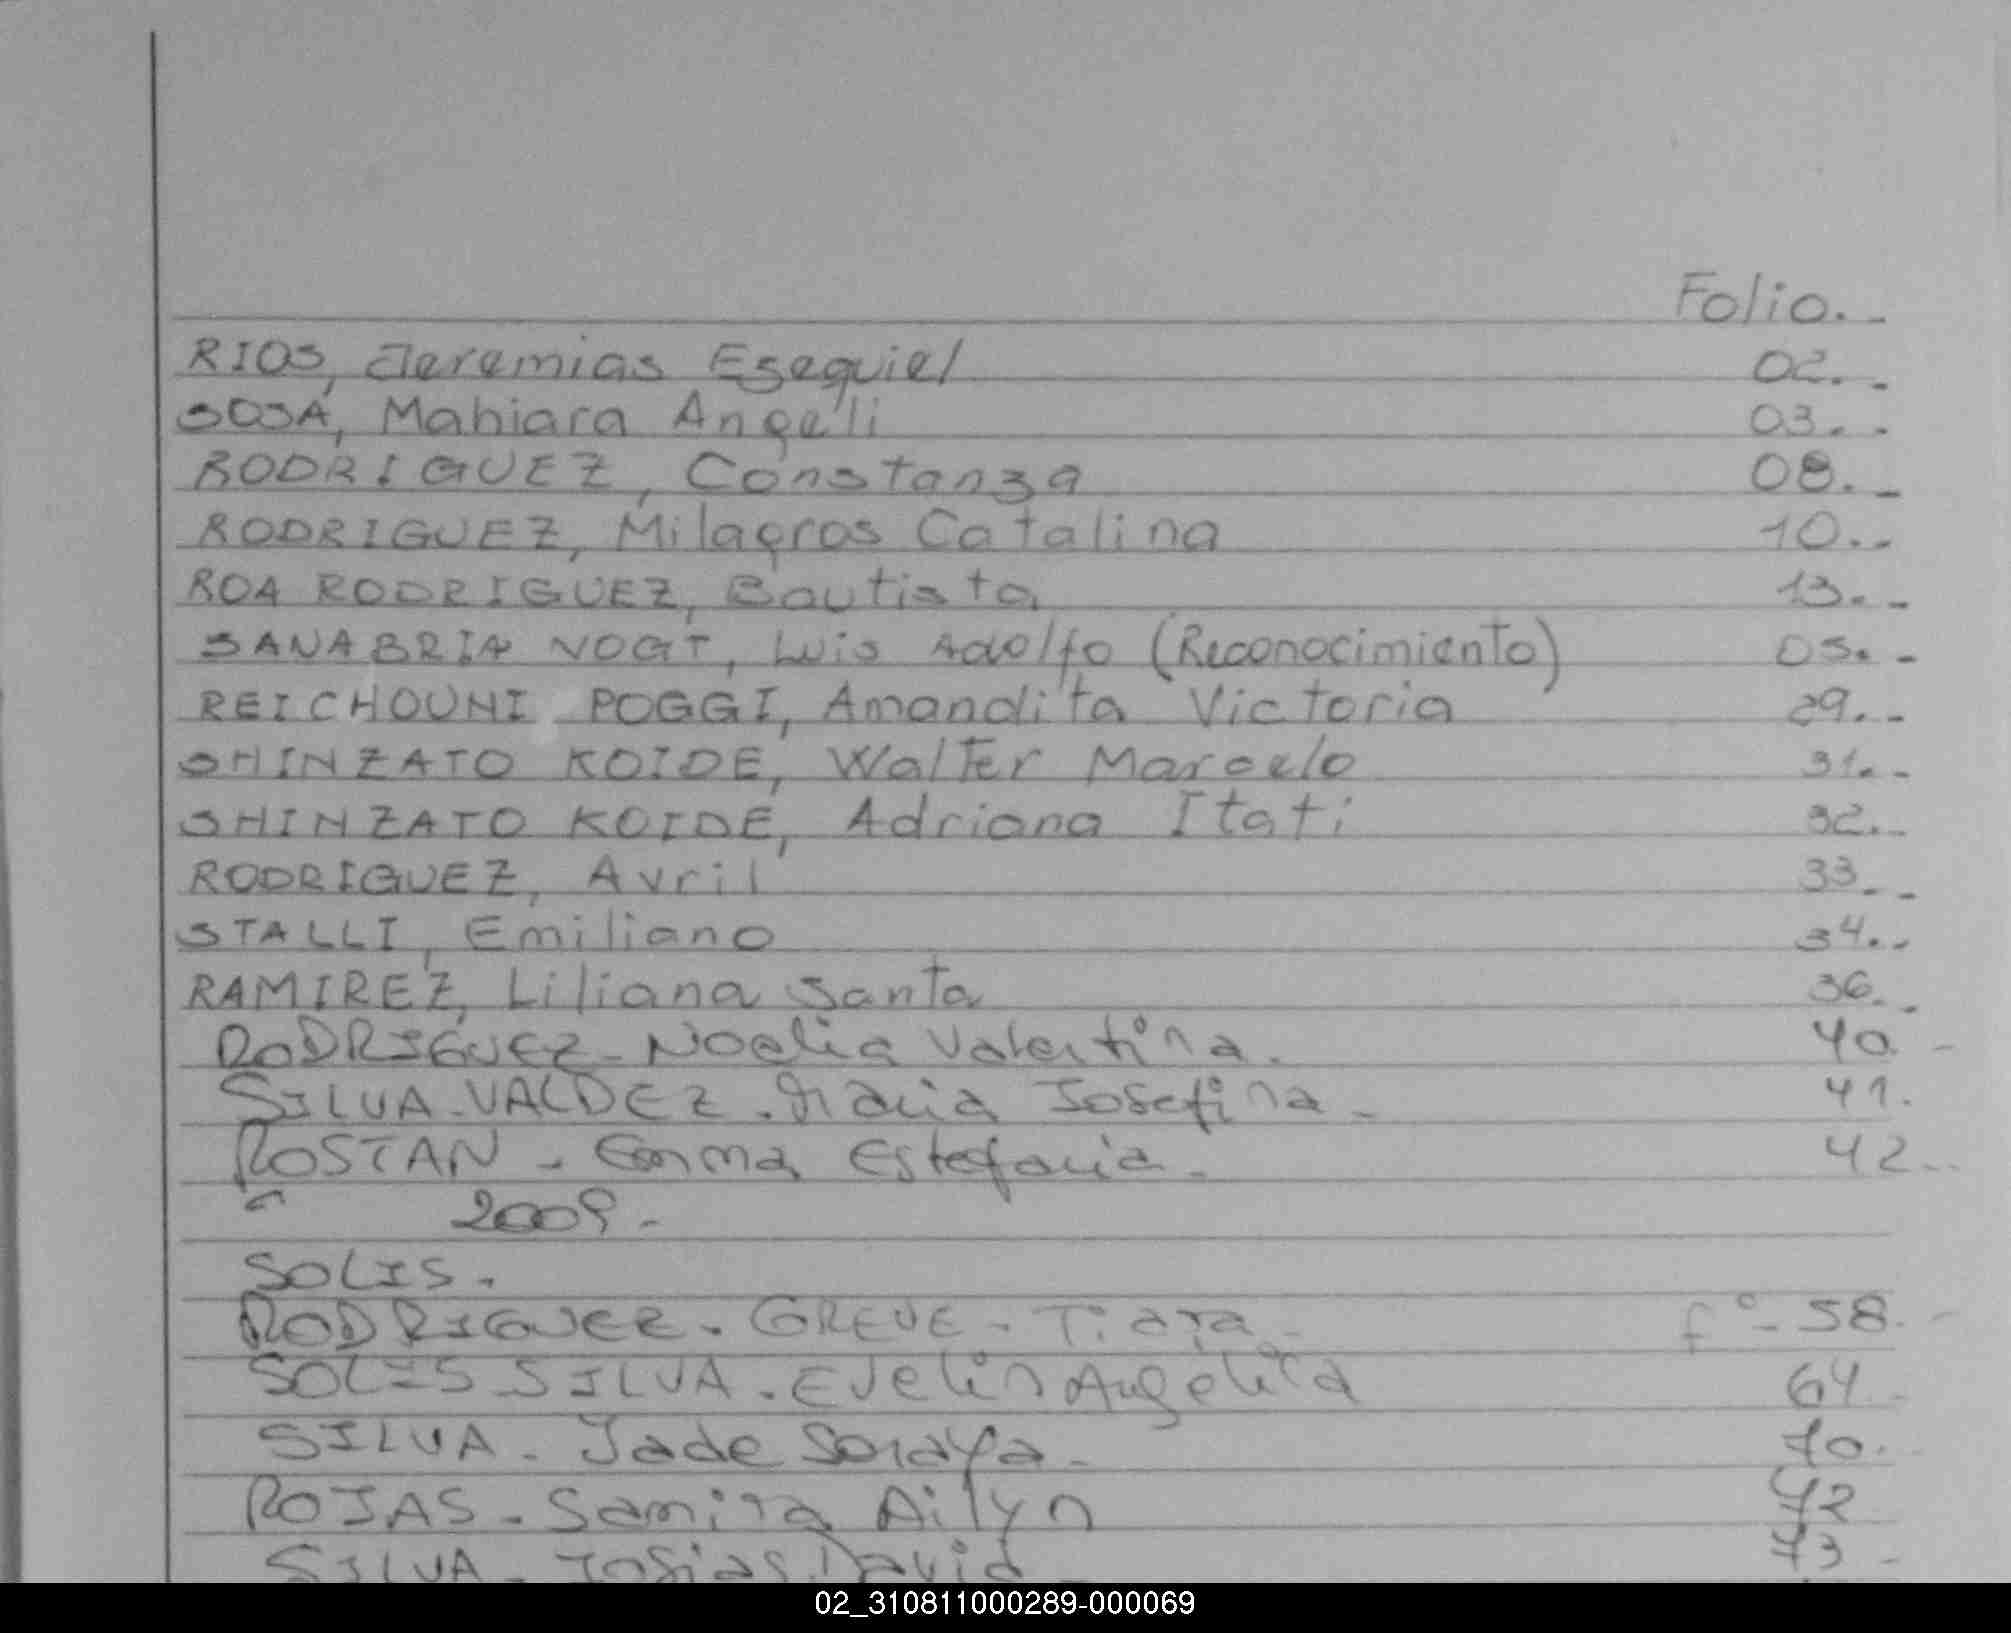 Folio.-
RIOS, Jeremias Esequiel 02.-
SOSA, Mahiara Angeli 03.-
RODRIGUEZ, Constanza 08.-
RODRIGUEZ, Milagros Catalina 10.-
ROA RODRIGUEZ, Bautista 13.-
SANABRIA VOGT, Luis Adolfo (Reconocimiento) 05.-
REICHOUNI POGGI, Amandita Victoria 29.-
SHINZATO KOIDE, Walter Marcelo 31.-
SHINZATO KOIDE, Adriana Itati 32.-
RODRIGUEZ, Avril 33.-
STALLI, Emiliano 34.-
RAMIREZ, Liliana Santa 36.-
RODRIGUEZ - Noelia Valentina. 40.-
SILVA - VALDEZ. Maria Josefina - 41.
ROSTAN - Emma Estefania - 42.-
2009.-
SOLIS.
RODRIGUEZ. GREVE - Tiara - fº- 58.-
SOLIS SILVA. Evelin Angelica 64.-
SILVA. Jade Soraya - 70.
ROJAS - Samira Ailyn 72
SILVA - Josias David - 73 -
02_310811000289-000069